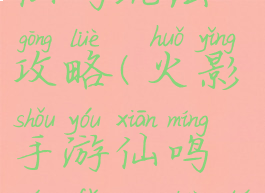 gōng lüè huǒ yǐng
攻略(火影
shǒu yóu xiān míng
手游仙鸣